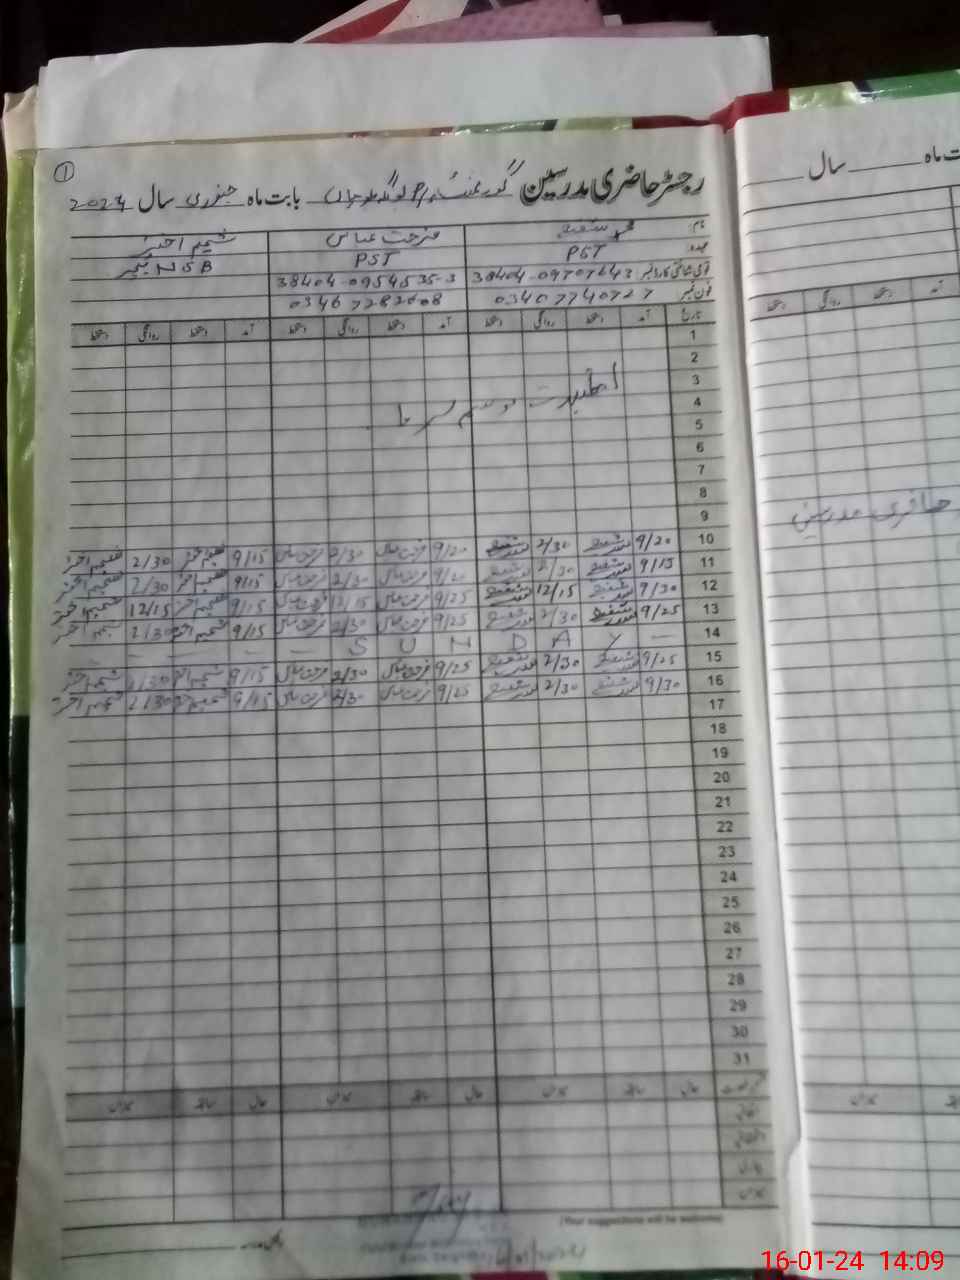 1
رجسٹر حاضری مدرسین گورنمنٹ بابت ماہ جنوری سال 2024
نام محمد شفیع فرحت عباس شمیم اختر
عہدہ PST PST NSB ممبر
قومی شناختی کارڈ نمبر 38404-09707643 38404-0954535-3
فون نمبر 03407740727 03467282608
تاریخ آمد دستخط روانگی دستخط آمد دستخط روانگی دستخط آمد دستخط روانگی دستخط
1
2
3
تعطیلات موسم سرما
4
5
6
7
8
9
10 9/20 محمد شفیع 2/30 محمد شفیع 9/20 فرحت عباس 2/30 فرحت عباس 9/15 شمیم اختر 2/30 شمیم اختر
11 9/15 محمد شفیع 2/30 محمد شفیع 9/20 فرحت عباس 2/30 فرحت عباس 9/15 شمیم اختر 2/30 شمیم اختر
12 9/30 محمد شفیع 12/15 محمد شفیع 9/25 فرحت عباس 12/15 فرحت عباس 9/15 شمیم اختر 12/15 شمیم اختر
13 9/25 محمد شفیع 2/30 محمد شفیع 9/25 فرحت عباس 2/30 فرحت عباس 9/15 شمیم اختر 2/30 شمیم اختر
14 — S U N D A Y —
15 9/25 محمد شفیع 2/30 محمد شفیع 9/25 فرحت عباس 2/30 فرحت عباس 9/15 شمیم اختر 2/30 شمیم اختر
16 9/30 محمد شفیع 2/30 محمد شفیع 9/25 فرحت عباس 2/30 فرحت عباس 9/15 شمیم اختر 2/30 شمیم اختر
17
18
19
20
21
22
23
24
25
26
27
28
29
30
31
حال سابقہ میزان حال سابقہ میزان حال سابقہ میزان
اتفاقی
میزان
(Your suggestions will be welcome)
بت ماہ سال
آمد دستخط روانگی دستخط
حاضری مدرسین
میزان
16-01-24 14:09